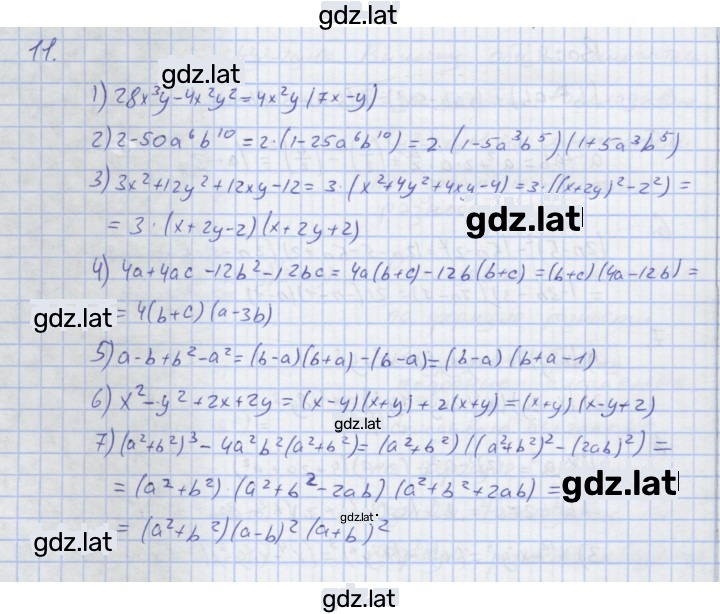 gdz.lat
11.
gdz.lat
1) 28x³y-4x²y²=4x²y(7x-y)
2) 2-50a⁶b¹⁰=2·(1-25a⁶b¹⁰)=2·(1-5a³b⁵)(1+5a³b⁵)
3) 3x²+12y²+12xy-12=3·(x²+4y²+4xy-4)=3·((x+2y)²-2²)=
=3·(x+2y-2)(x+2y+2)
gdz.lat
4) 4a+4ac-12b²-12bc=4a(b+c)-12b(b+c)=(b+c)(4a-12b)=
gdz.lat
=4(b+c)(a-3b)
5) a-b+b²-a²=(b-a)(b+a)-(b-a)=(b-a)(b+a-1)
6) x²-y²+2x+2y=(x-y)(x+y)+2(x+y)=(x+y)(x-y+2)
gdz.lat
7) (a²+b²)³-4a²b²(a²+b²)=(a²+b²)((a²+b²)²-(2ab)²)=
=(a²+b²)(a²+b²-2ab)(a²+b²+2ab)=
gdz.lat
gdz.lat
=(a²+b²)(a-b)²(a+b)²
gdz.lat
gdz.lat